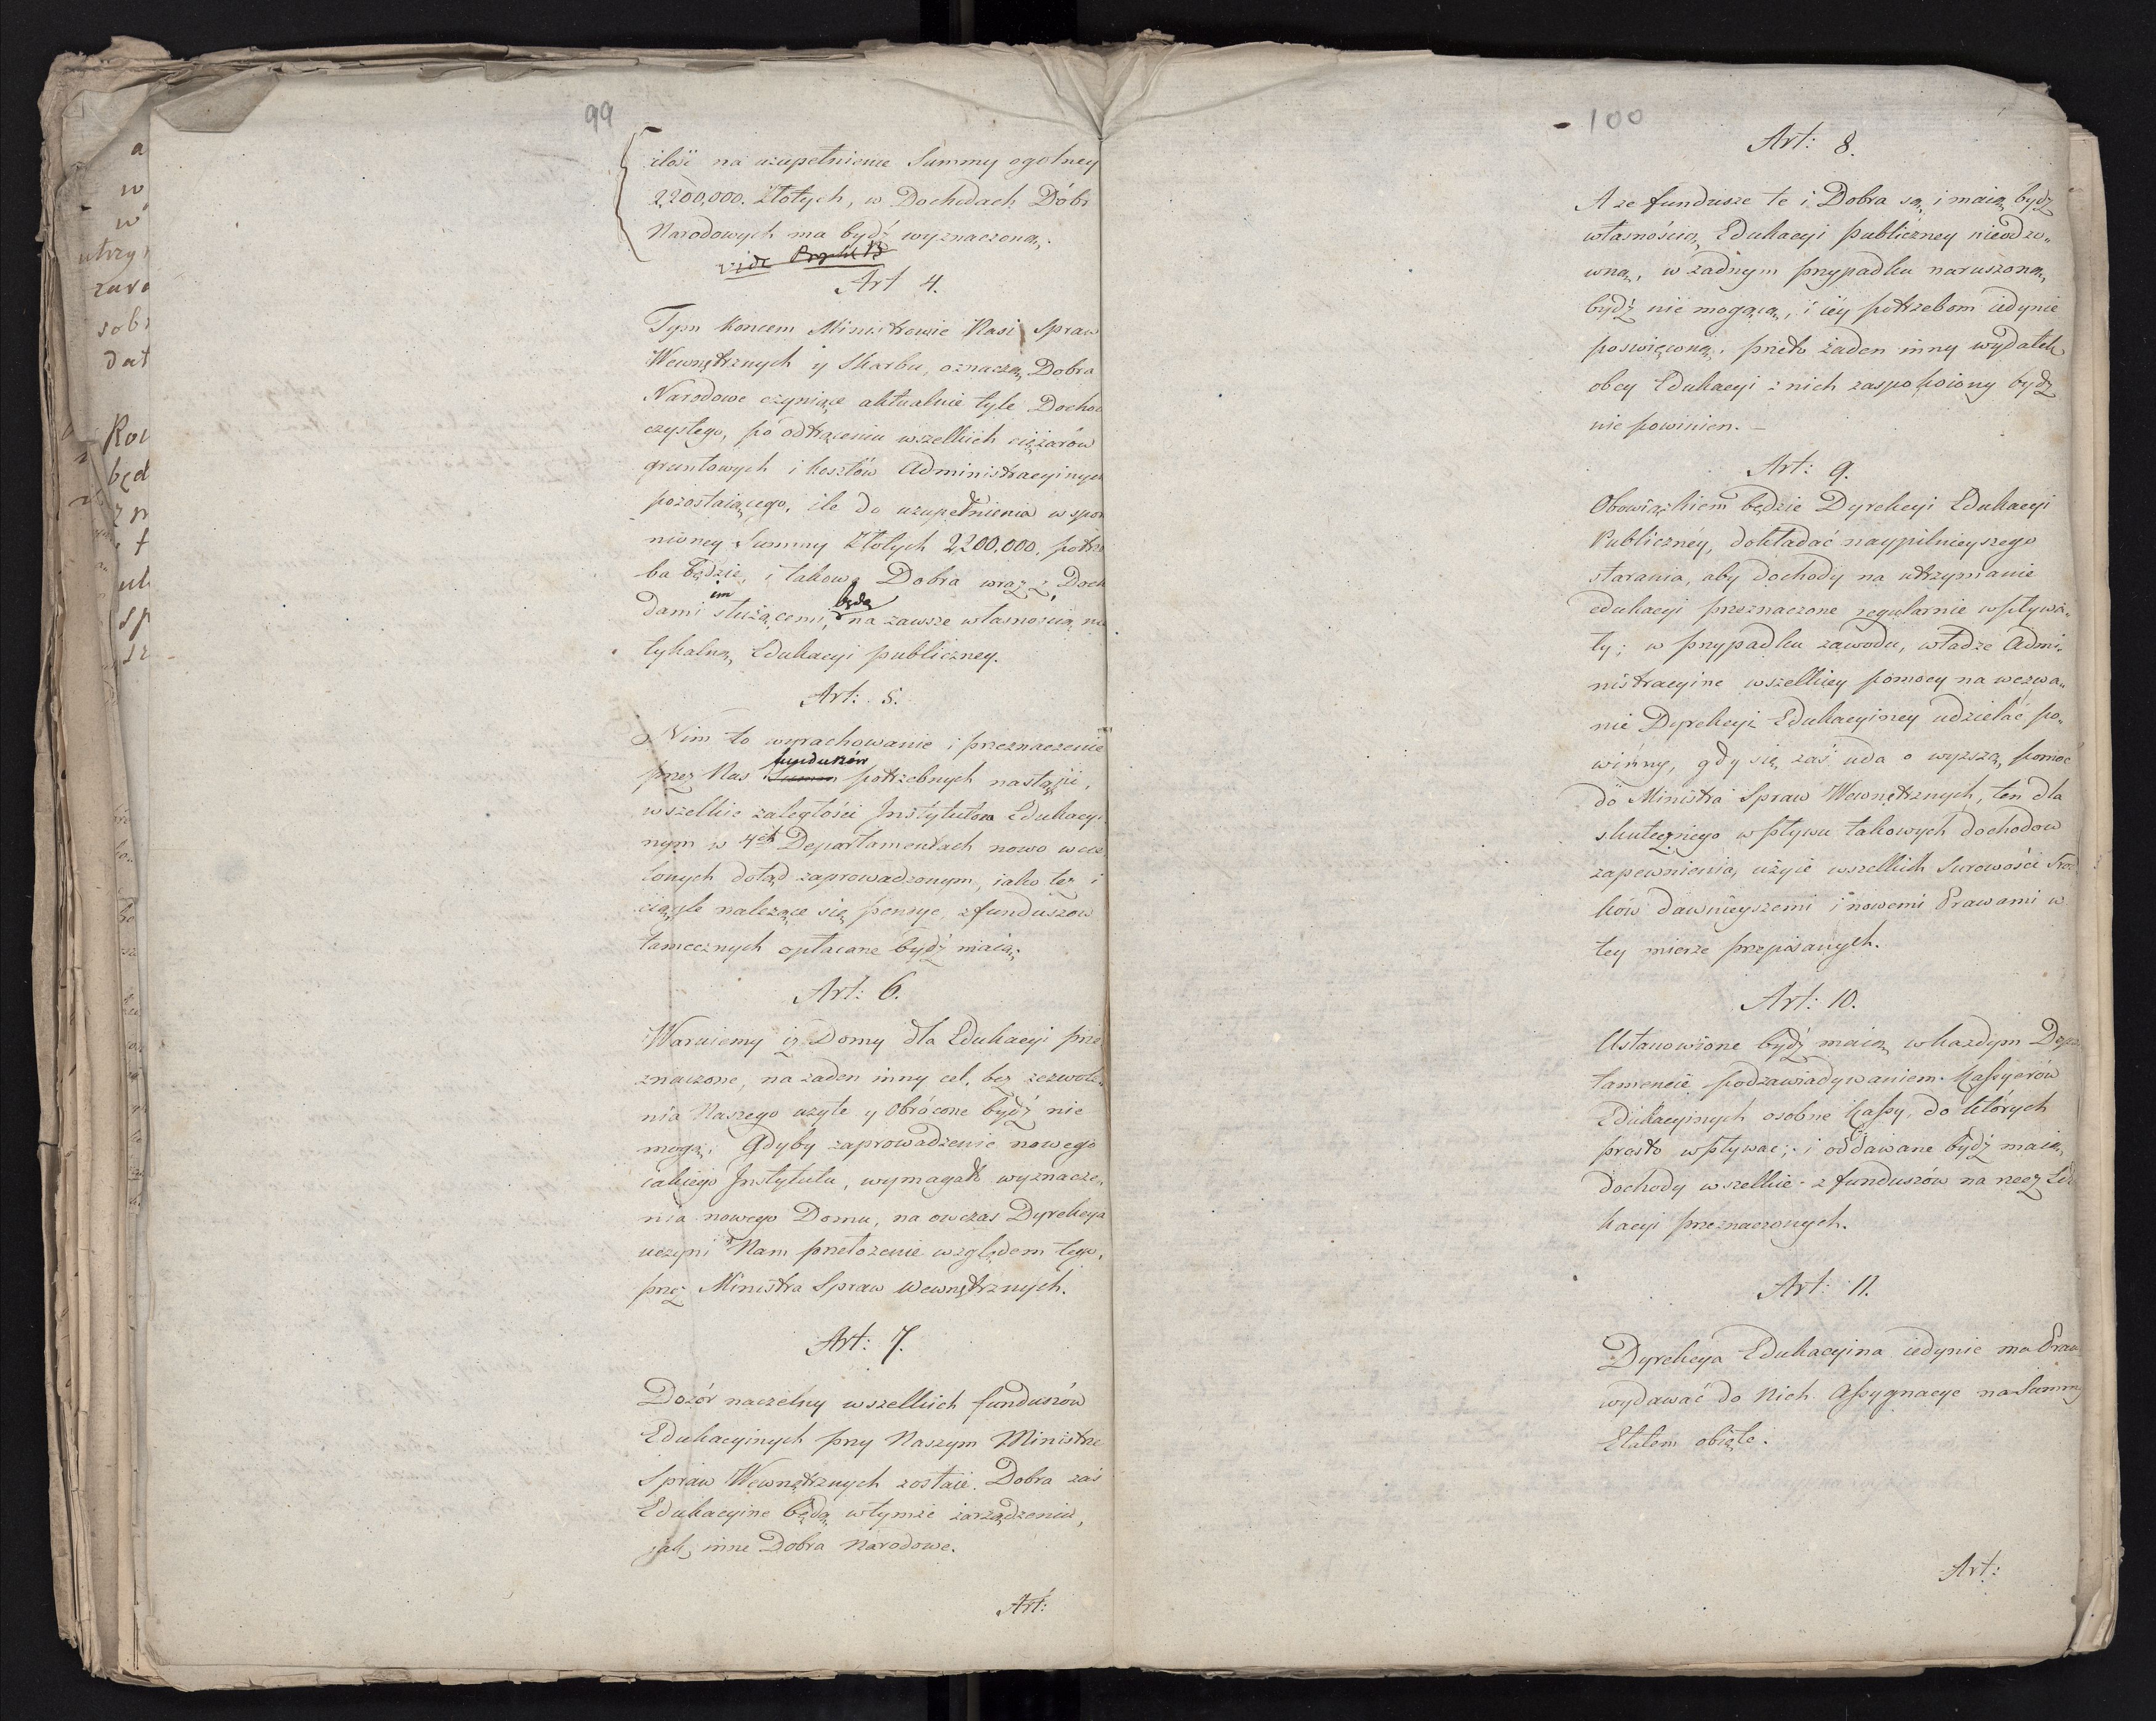 99
ilość na uzupełnienie Summy ogolney
2,200,000. Złotych, w Dochodach Dóbr
Narodowych ma bydź wyznaczona.
vide
Art 4.
Tym koncem Ministrowie Nasi Spraw
Wewnętrznych y Skarbu, oznaczą Dobra
Narodowe czyniące aktualnie tyle Docho
czystego, po odtrąceniu wszelkich ciężarów
gruntowych i kosztów Administracyinych
pozostaiącego, ile do uzupełnienia wspo
nioney Summy Złotych 2,200,000, potrze
ba będzie, i takowe Dobra wraz z Doch
dami im służącemi, będą na zawsze własnością nie
tykalną Edukacyi publiczney.
Art: 5.
Nim to wyrachowanie i przeznaczenie
przez Nas Summ funduszów potrzebnych nastąpi,
wszelkie zaległości Instytutom Edukacyi
nym w 4ch Departamentach nowo wcie
lonych dotąd zaprowadzonym, iako też i
ciągle należące się pensye, z funduszow
tamecznych opłacane bydź maią.
Art: 6.
Waruiemy iż Domy dla Edukacyi prze
znaczone, na żaden inny cel, bez zezwole„
nia Naszego użyte y obrócone bydź nie
mogą. Gdyby zaprowadzenie nowego
iakiego Instytutu, wymagało wyznacze„
nia nowego Domu, na owczas Dyrekcya
uczyni Nam przełożenie względem tego,
przez Ministra Spraw Wewnętrznych.
Art: 7.
Dozór naczelny wszelkich funduszów
Edukacyinych przy Naszym Ministrze
Spraw Wewnętrznych zostaie. Dobra zaś
Edukacyine będą w tymże zarządzeniu,
jak inne Dobra Narodowe.
Art:
100
Art: 8.
A że fundusze te i Dobra są, i maią bydź
własnością Edukacyi publiczney nieodzo„
wną, w żadnym przypadku naruszoną
bydź nie mogącą, i iey potrzebom iedynie
poswięconą, przeto żaden inny wydatek
obcy Edukacyi z nich zaspokoiony bydź
nie powinien. —
Art: 9.
Obowiązkiem będzie Dyrekcyi Edukacyi
Publiczney, dokładać naypilnieyszego
starania, aby dochody na utrzymanie
edukacyi przeznaczone regularnie wpływa„
ły; w przypadku zawodu, władze Admi„
nistracyine wszelkiey pomocy na wezwa„
nie Dyrekcyi Edukacyiney udzielać po„
winny, gdy się zaś uda o wyższą pomoc
do Ministra Spraw Wewnętrznych, ten dla
skutecznego wpływu takowych dochodow
zapewnienia, użyie wszelkich surowości środ
ków dawnieyszemi i nowemi Prawami w
tey mierze przepisanych.
Art: 10.
Ustanowione bydź maią w każdym Depar
tamencie pod zawiadywaniem Kassyerów
Edukacyinych osobne Kassy, do których
prosto wpływac; i oddawane bydź maią
dochody wszelkie z funduszów na rzecz Edu
kacyi przeznaczonych.
Art: 11.
Dyrekcya Edukacyina iedynie ma Praw
wydawać do Nich Assygnacye na Summy
Etatem obięte.
Art: